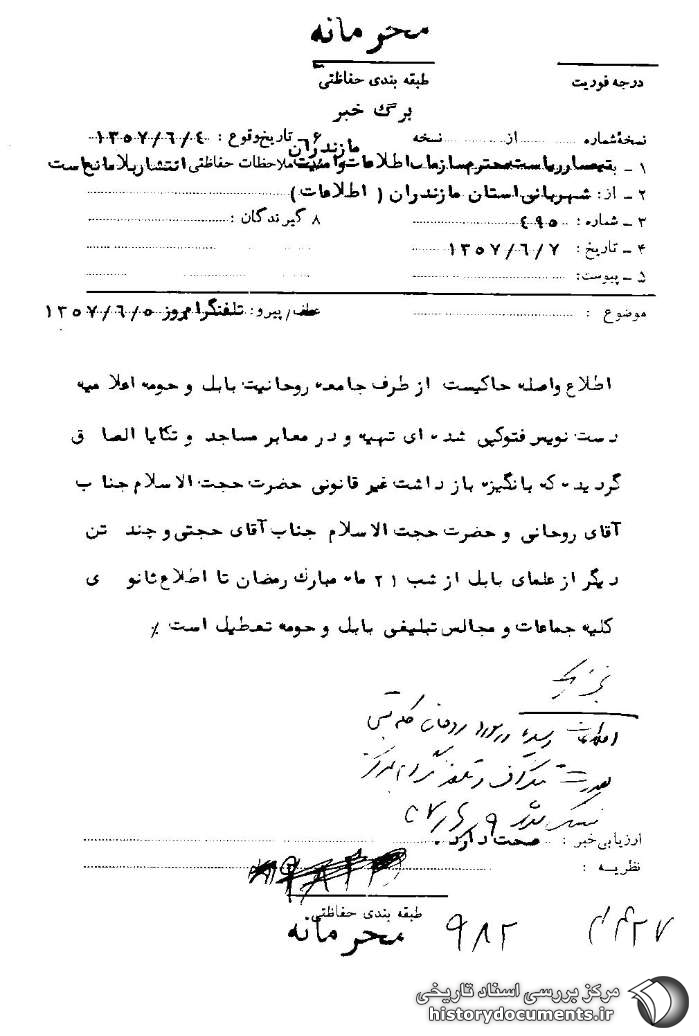 محرمانه
درجه فوریت
طبقه بندی حفاظتی
برگ خبر
نسخهٔ شماره از نسخه ۶ـ تاریخ وقوع : ۱۳۵۷/۶/٤
۱ ـ به تیمسار ریاست محترم سازمان اطلاعات و امنیت مازندران ملاحظات حفاظتی انتشار بلامانع است
۲ ـ از: شهربانی استان مازندران ( اطلاعات )
۳ ـ شماره : ٤۹۵ ۸ گیرندگان :
٤ ـ تاریخ : ۱۳۵۷/۶/۷
۵ ـ پیوست:
موضوع : عطف/پیرو: تلفنگرام روز ۱۳۵۷/۶/۵
اطلاع واصله حاکیست از طرف جامعه روحانیت بابل و حومه اعلامیه
دست نویس فتوکپی شده ای تهیه و در معابر مساجد و تکایا الصاق
گردیده که بانگیزه بازداشت غیر قانونی حضرت حجت الاسلام جناب
آقای روحانی و حضرت حجت الاسلام جناب آقای حجتی و چند تن
دیگر از علمای بابل از شب ۲۱ ماه مبارک رمضان تا اطلاع ثانوی
کلیه جماعات و مجالس تبلیغی بابل و حومه تعطیل است ٪
ارزیابی خبر : صحت دارد .
نظریه :
طبقه بندی حفاظتی
محرمانه
۹۸۲
مرکز بررسی اسناد تاریخی
historydocuments.ir